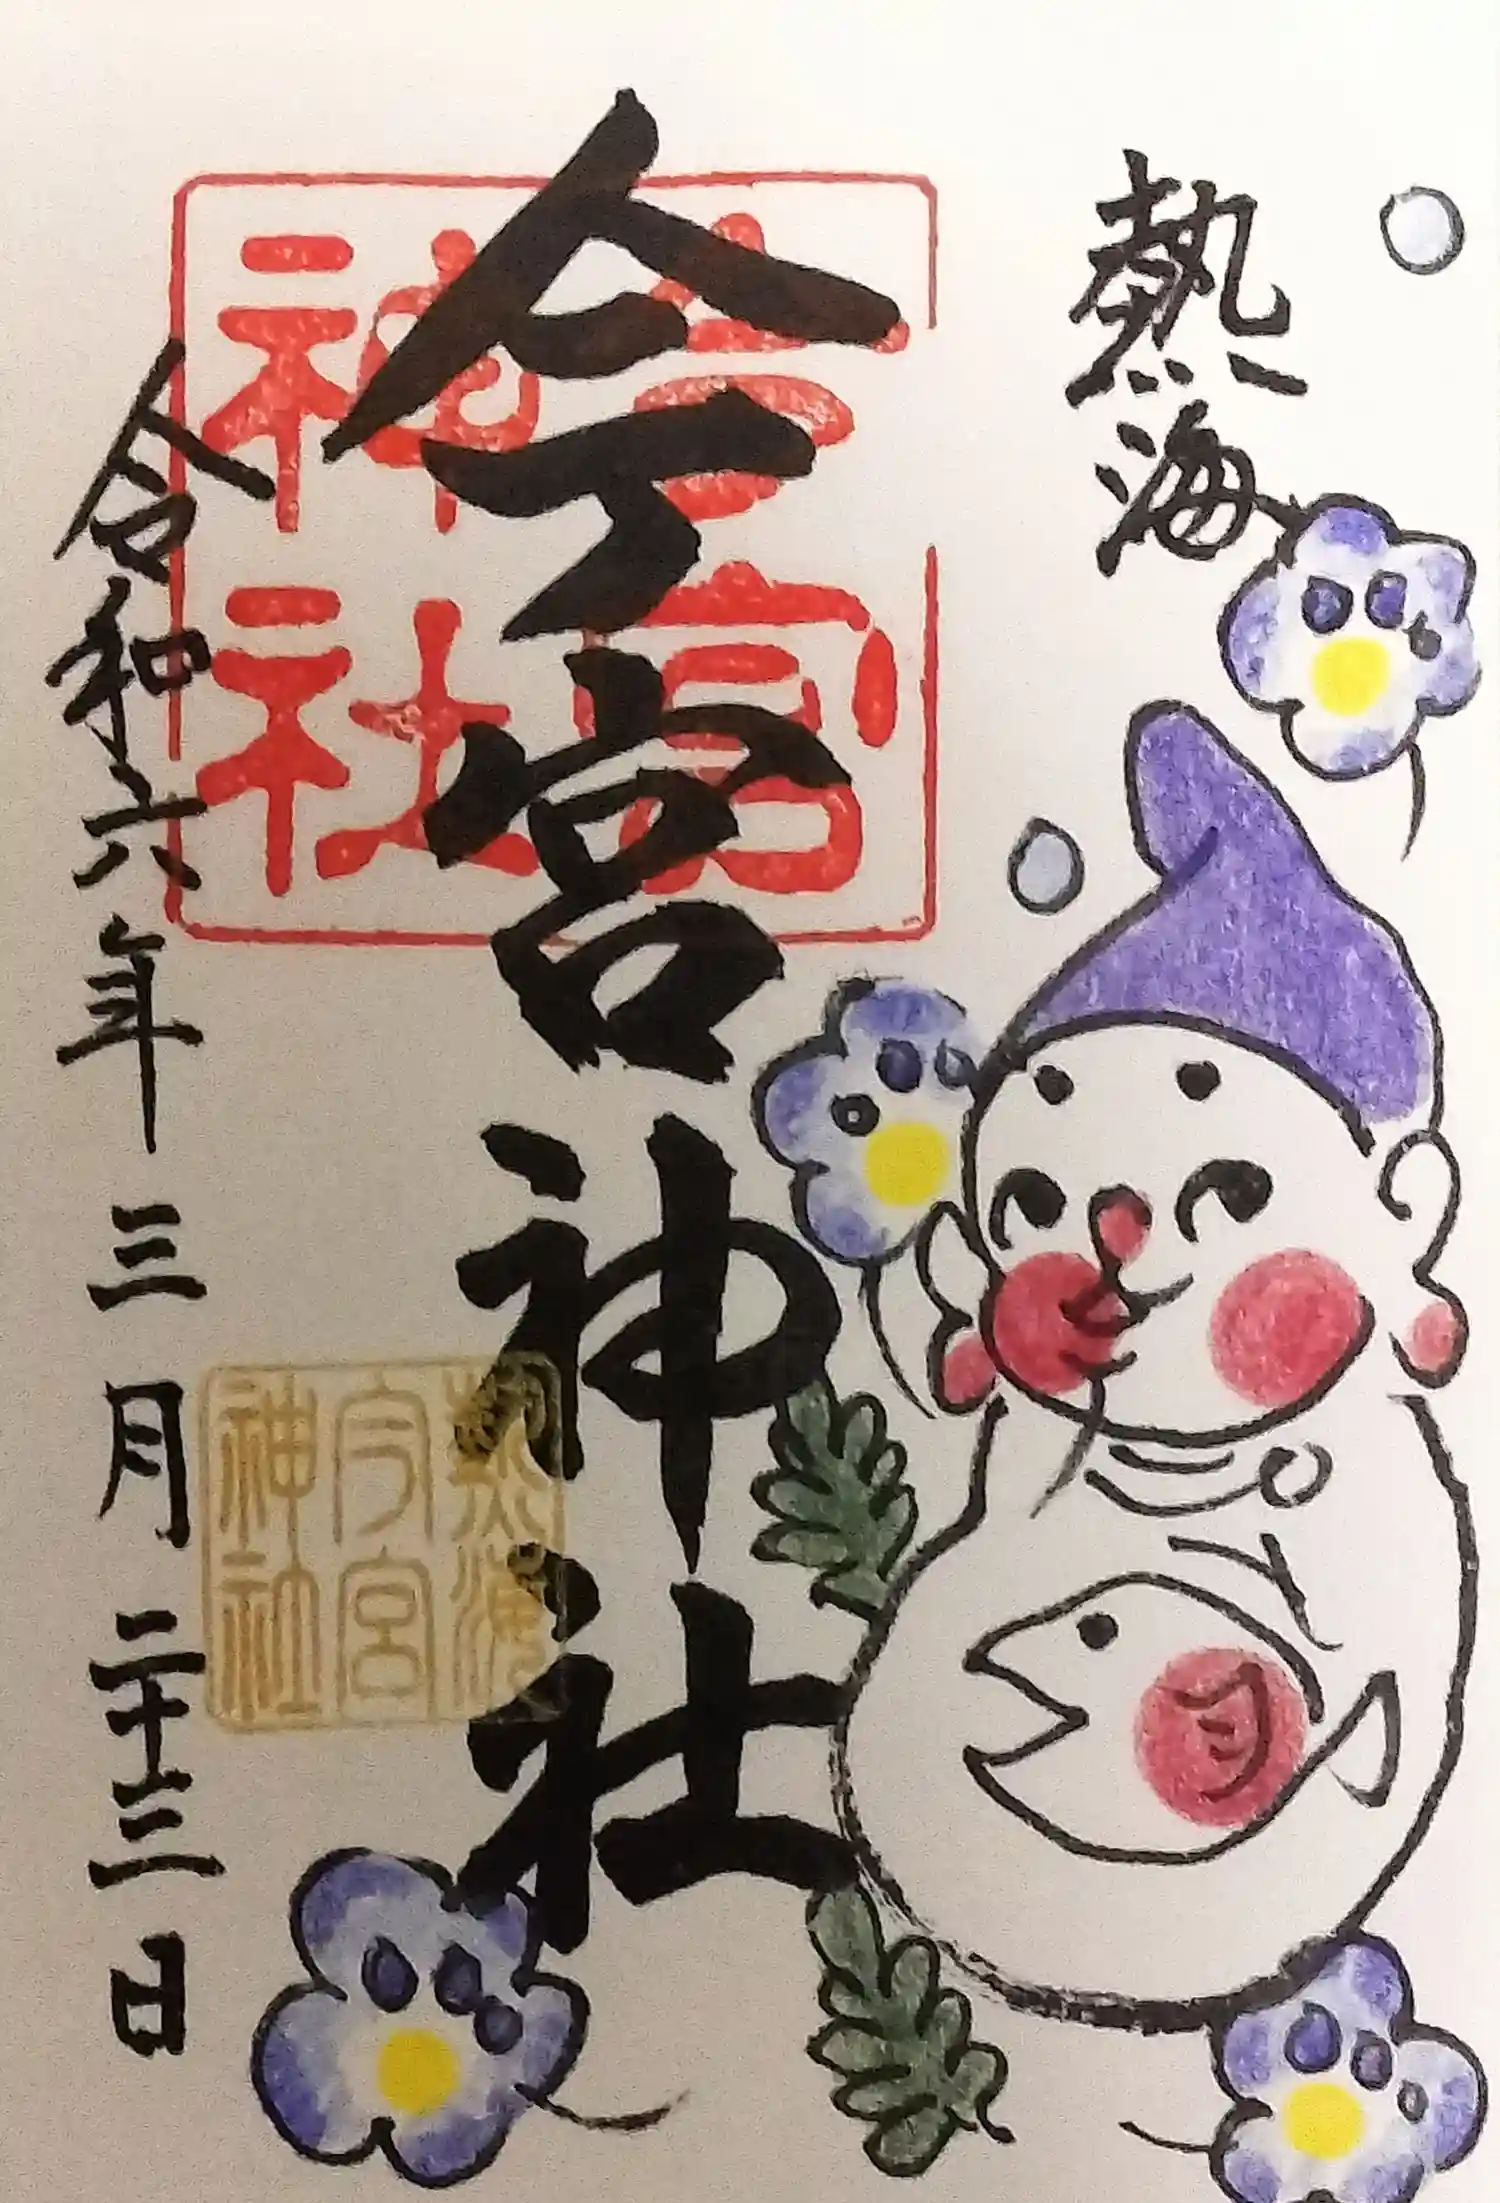 熱海
今宮神社
今宮
神社
熱海
今宮
神社
令和六年三月二十三日